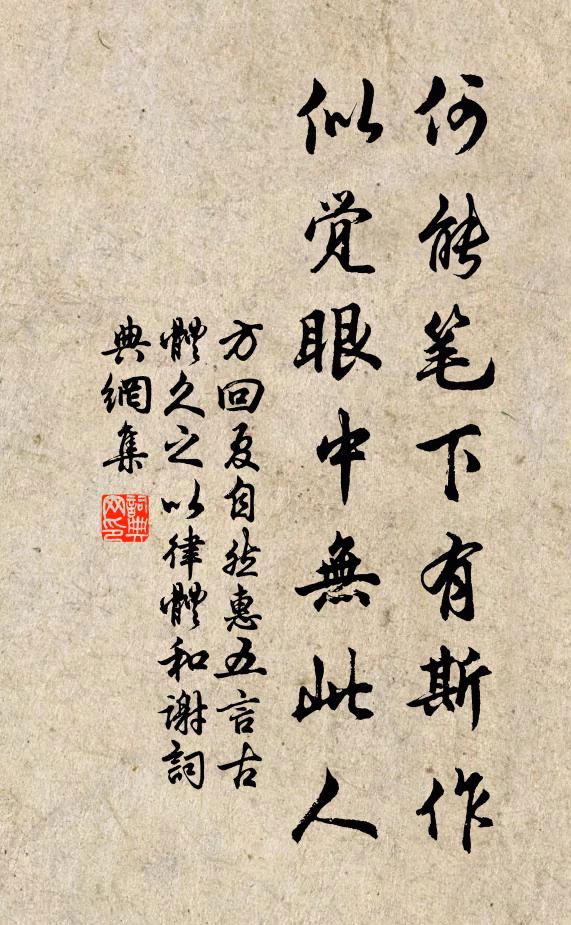 何能笔下有斯作
似觉眼中無此人
方回夏自然惠五言古
體久之以律體和謝詞
典網集
詞典网印